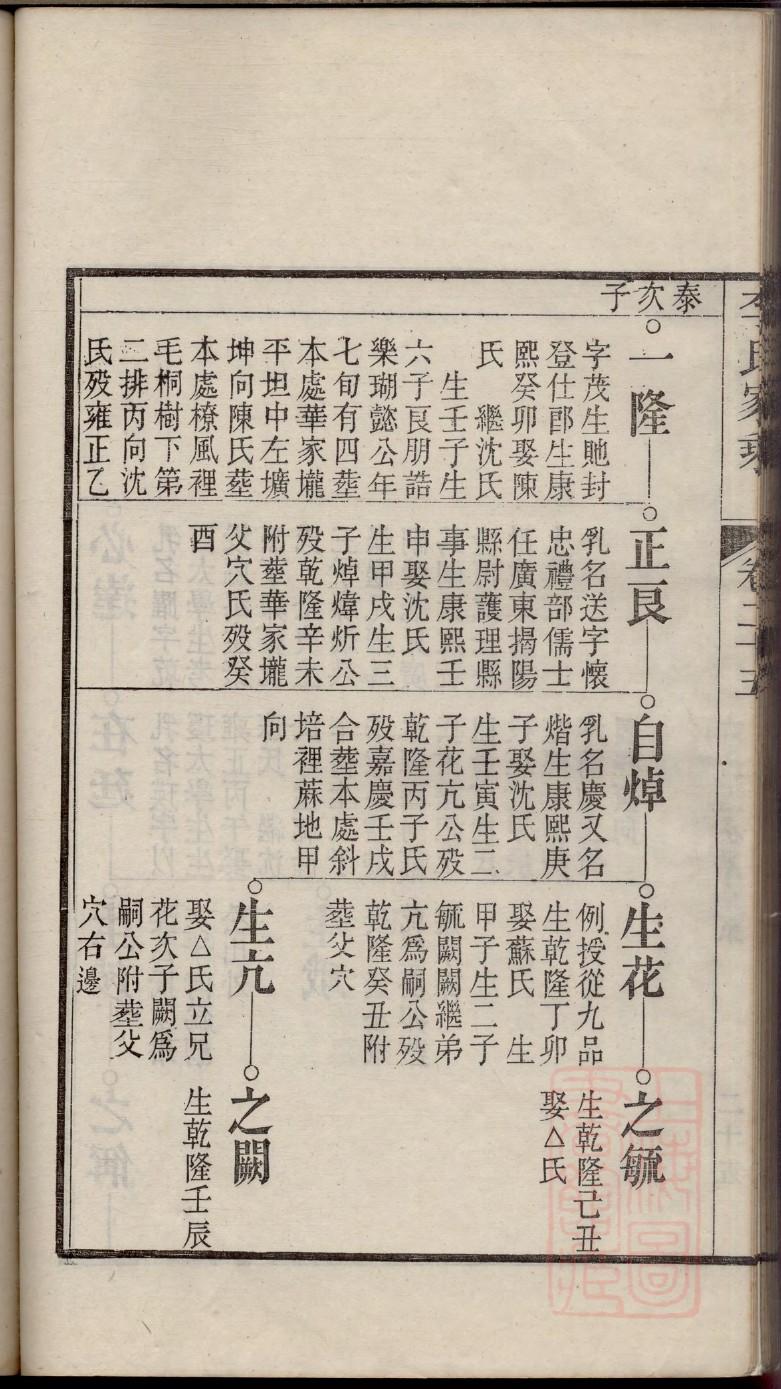 李氏家乘
卷二十五
泰次子
一隆
字茂生貤封
登仕郎生康
熙癸卯娶陳
氏　繼沈氏
生壬子生
六子良朋誥
樂瑚懿公年
七旬有四塟
本處華家壠
平坦中左壙
坤向陳氏塟
本處橑風裡
毛桐樹下第
二排丙向沈
氏歿雍正乙
酉
正良
乳名送字懷
忠禮部儒士
任廣東揭陽
縣尉護理縣
事生康熙壬
申娶沈氏
生甲戌生三
子焯煒炘公
歿乾隆辛未
附塟華家壠
父穴氏歿癸
自焯
乳名慶又名
熸生康熙庚
子娶沈氏
生壬寅生二
子花亢公歿
乾隆丙子氏
歿嘉慶壬戌
合塟本處斜
培裡蔴地甲
向
生花
例授從九品
生乾隆丁卯
娶蘇氏　生
甲子生二子
毓闕闕繼弟
亢爲嗣公歿
乾隆癸丑附
塟父穴
之毓
生乾隆己丑
娶△氏
生亢
娶△氏立兄
花次子闕爲
嗣公附塟父
穴右邊
之闕
生乾隆壬辰